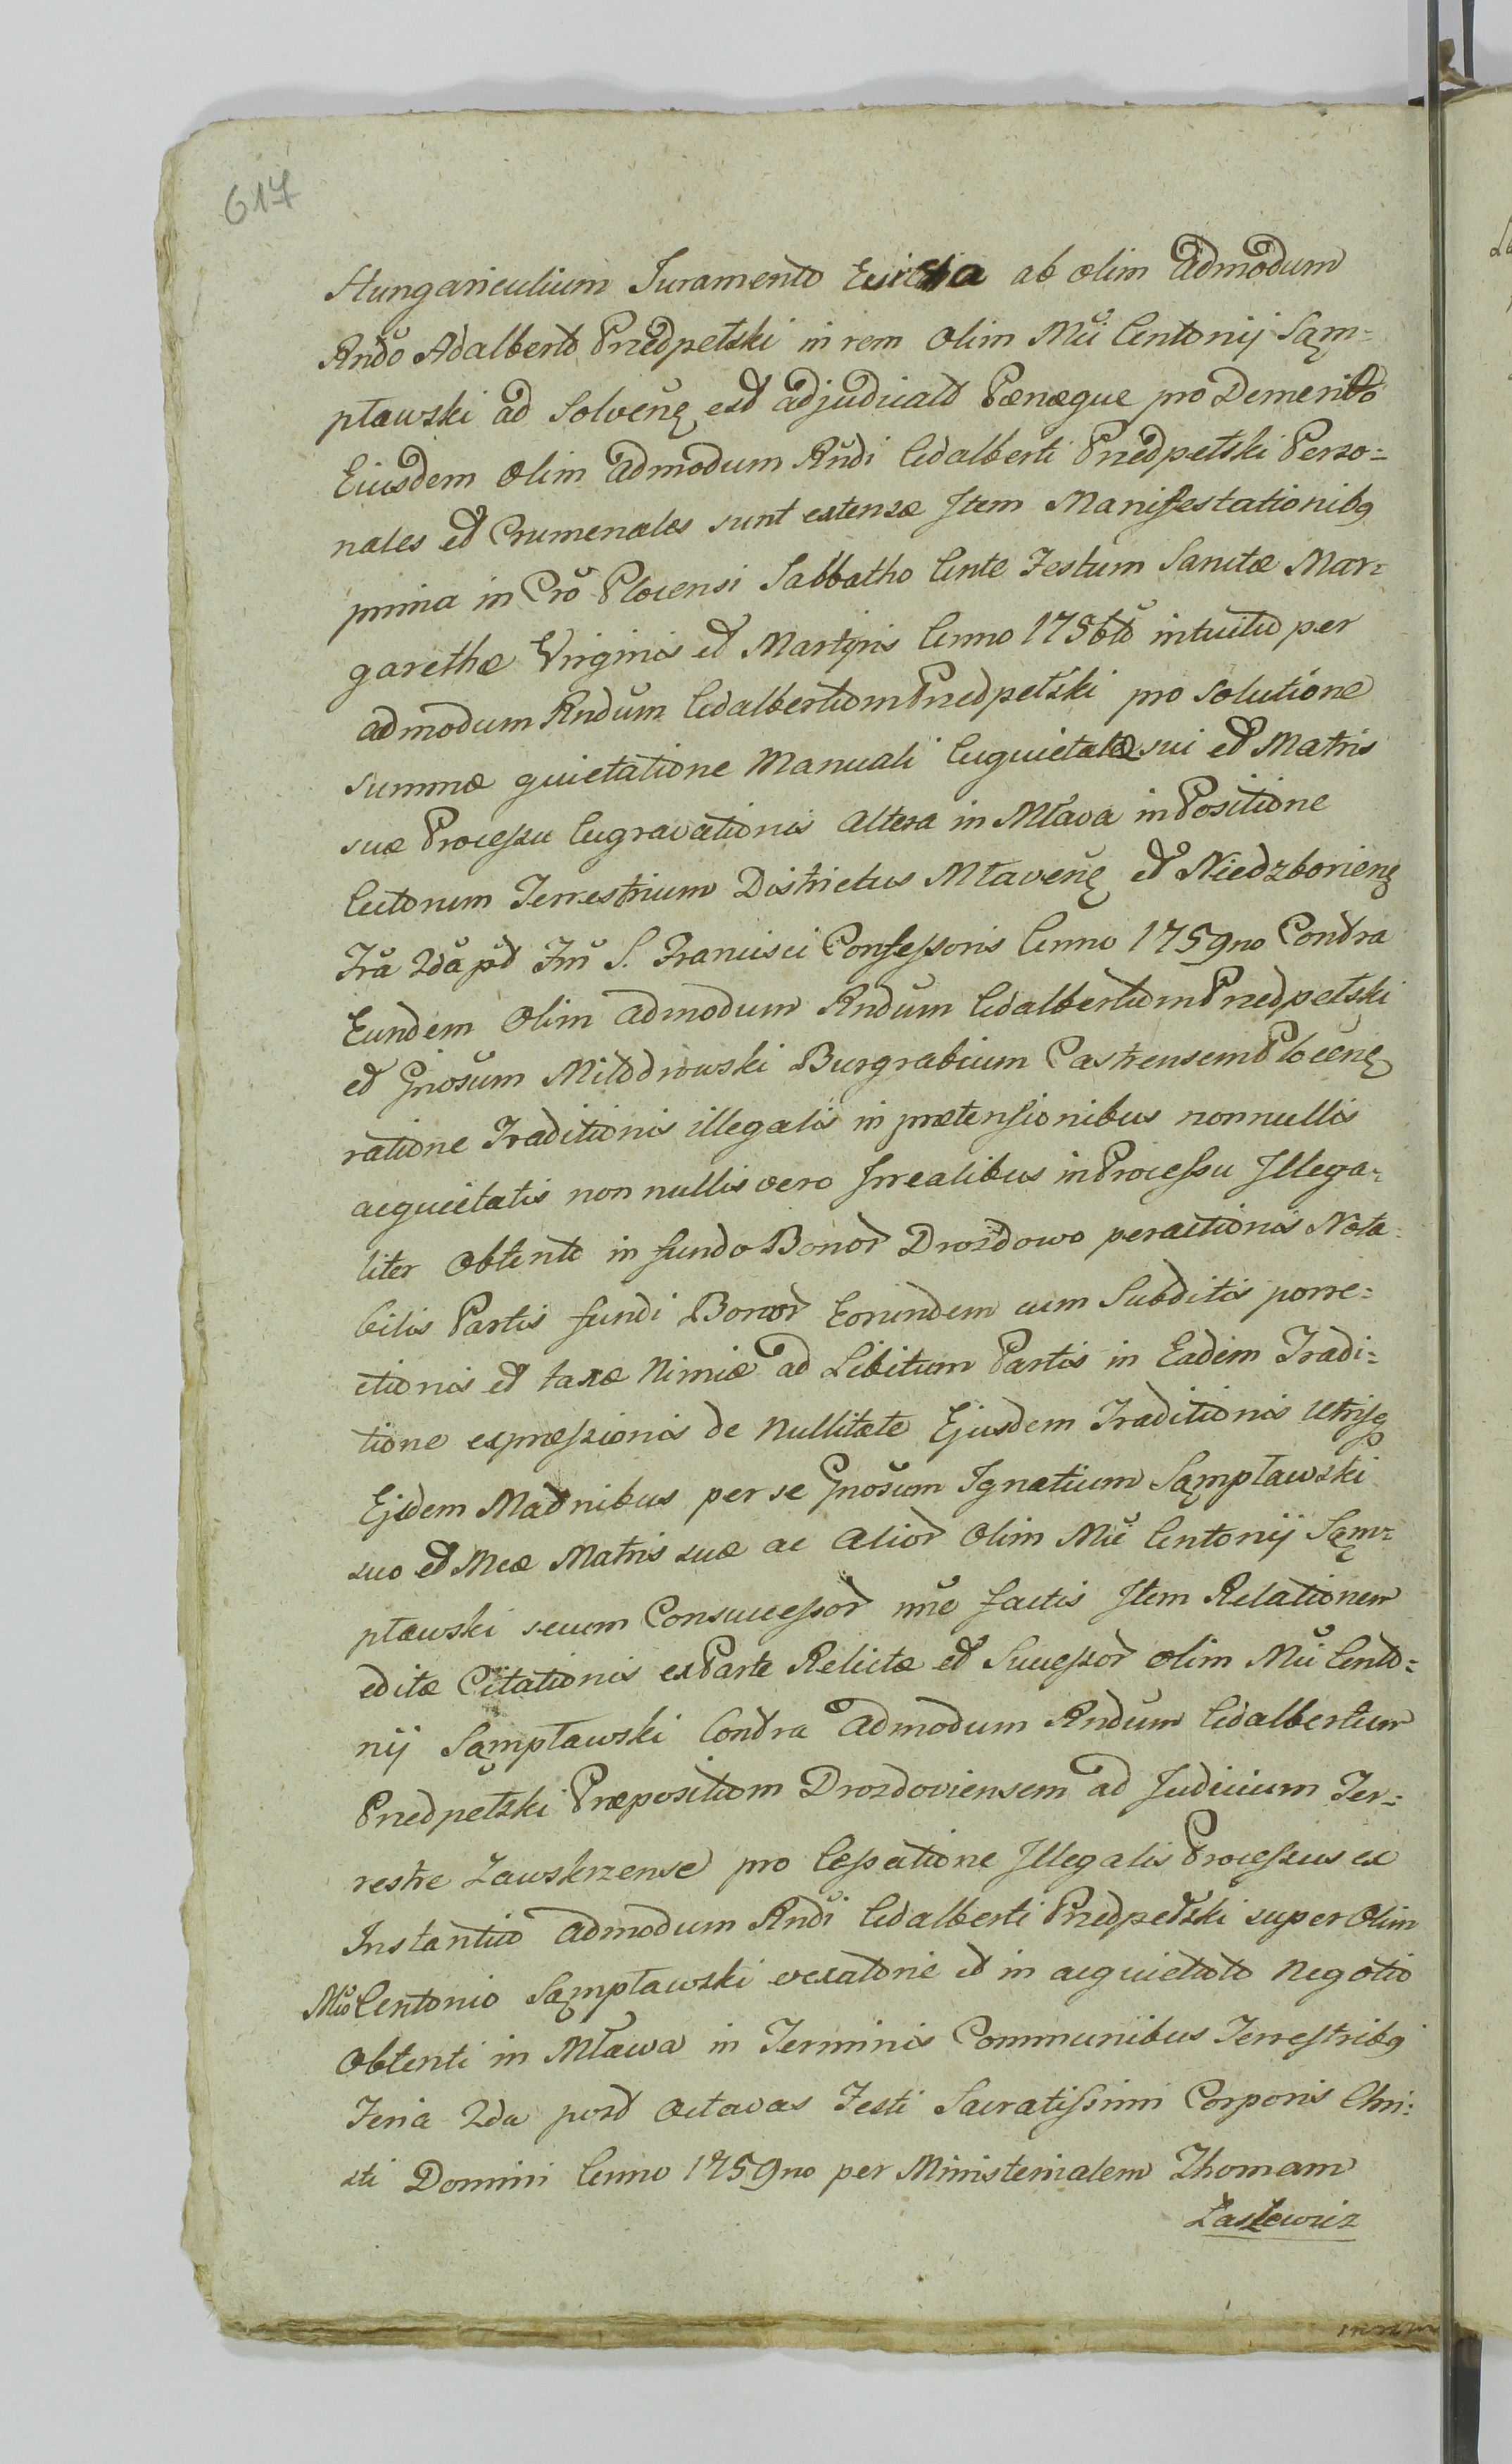 617
Hungaricalium Juramento Evicta ab olim Admodum
Rndo Adalberto Przedpełski in rem Olim Mci Antonij Sąm=
pławski ad Solvenę est adjudicata Pænæque pro Demerito
Eiusdem Olim Admodum Rndi Adalberti Przedpełski Perso=
nales et Crumenales sunt extensæ Item Manifestationibq
prima in Cro Plocensi Sabbatho Ante Festum Sanctæ Mar=
garethæ Virginis et Martyris Anno 1756to intuitu per
admodum Rndum Adalbertum Przedpełski pro Solutione
summæ quietatione Manuali Acquietatæ sui et Matris
suæ Processu Aggravationis altera in Mława in Positione
Actorum Terrestrium Districtus Młavenę et Niedzborienę
Fra 2da pt Fm S. Francisci Confessoris Anno 1759no Contra
Eundem Olim admodum Rndum Adalbertum Przedpełski
et Gnosum Miłodrowski Burgrabium Castrensem Plocenę
ratione Traditionis illegalis in prætensionibus nonnullis
acquietatis non nullis vero Irrealibus in Processu Illega=
liter Obtento in fundo Bonor Drozdowo peractionis Nota=
bilis Partis fundi Bonor Eorundem cum Subditis porre=
ctionis et taxæ Nimiæ ad Libitum Partis in Eadem Tradi=
tione expressionis de Nullitate Ejusdem Traditionis Utrisq
Ejdem Matnibus per se Gnosum Ignatium Sąmpławski
suo et Mcæ Matris suæ ac Alior Olim Mci Antonij Sąm=
pławski secum Consuccessor nne factis Item Relationem
editæ Citationis ex Parte Relictæ et Successor olim Mci Anto=
nij Sąmpławski Contra Admodum Rndum Adalbertum
Przedpełski Præpositum Drozdoviensem ad Judicium Ter=
restre Zawskrzense pro Cassatione Illegalis Processus ex
Instantia Admodum Rndi Adalberti Przedpełski super Olim
Mco Antonio Sąmpławski vexatorie et in acquietato Negotio
Obtenti in Mława in Terminis Communibus Terrestribq
Feria 2da post Octavas Festi Sacratissimi Corporis Chri=
sti Domini Anno 1759no per Ministerialem Thomam
Łaszewicz